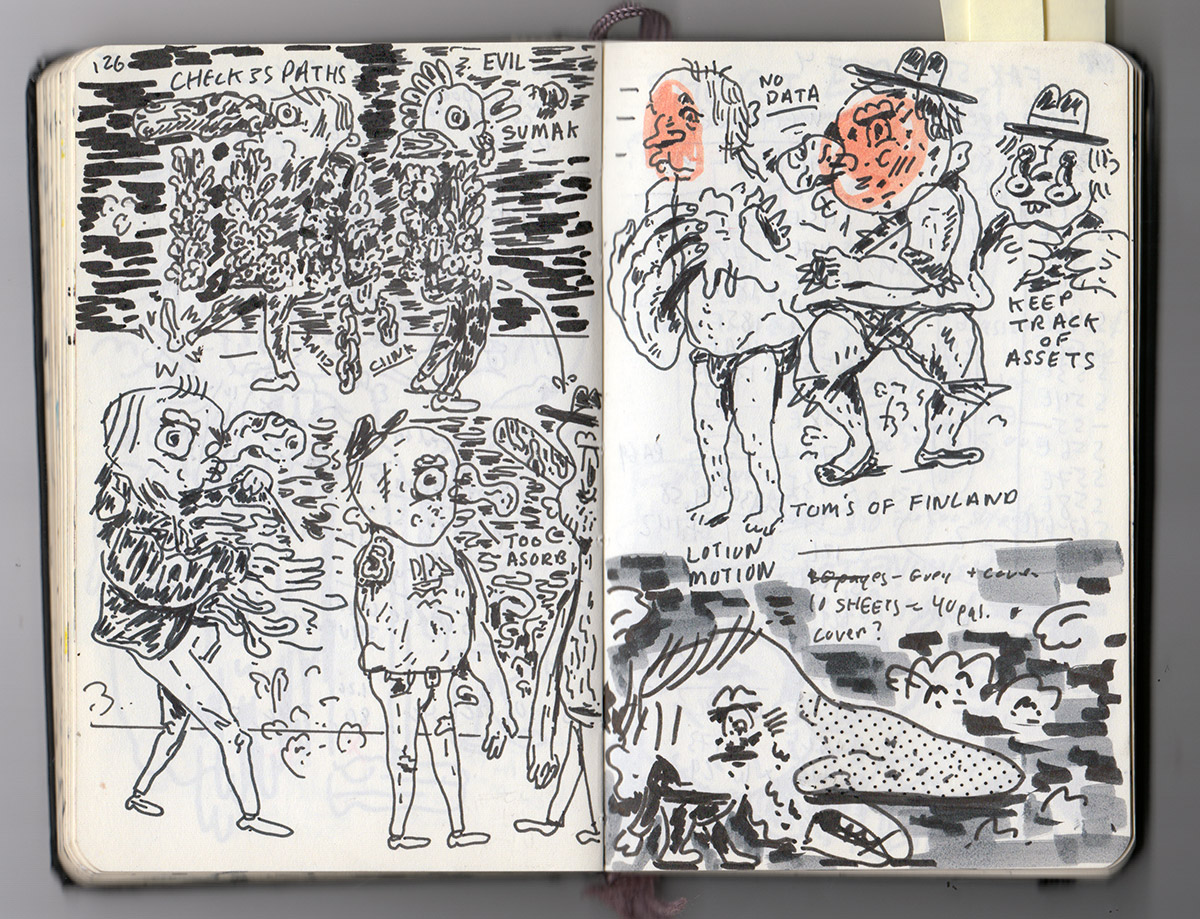 126
CHECK 35 PATHS
EVIL
SUMAK
CLINK
TOO
ASORB
NO
DATA
KEEP
TRACK
OF
ASSETS
TOM'S OF FINLAND
LOTION
MOTION
pages - Grey + cover
10 SHEETS = 40 pgs.
cover?